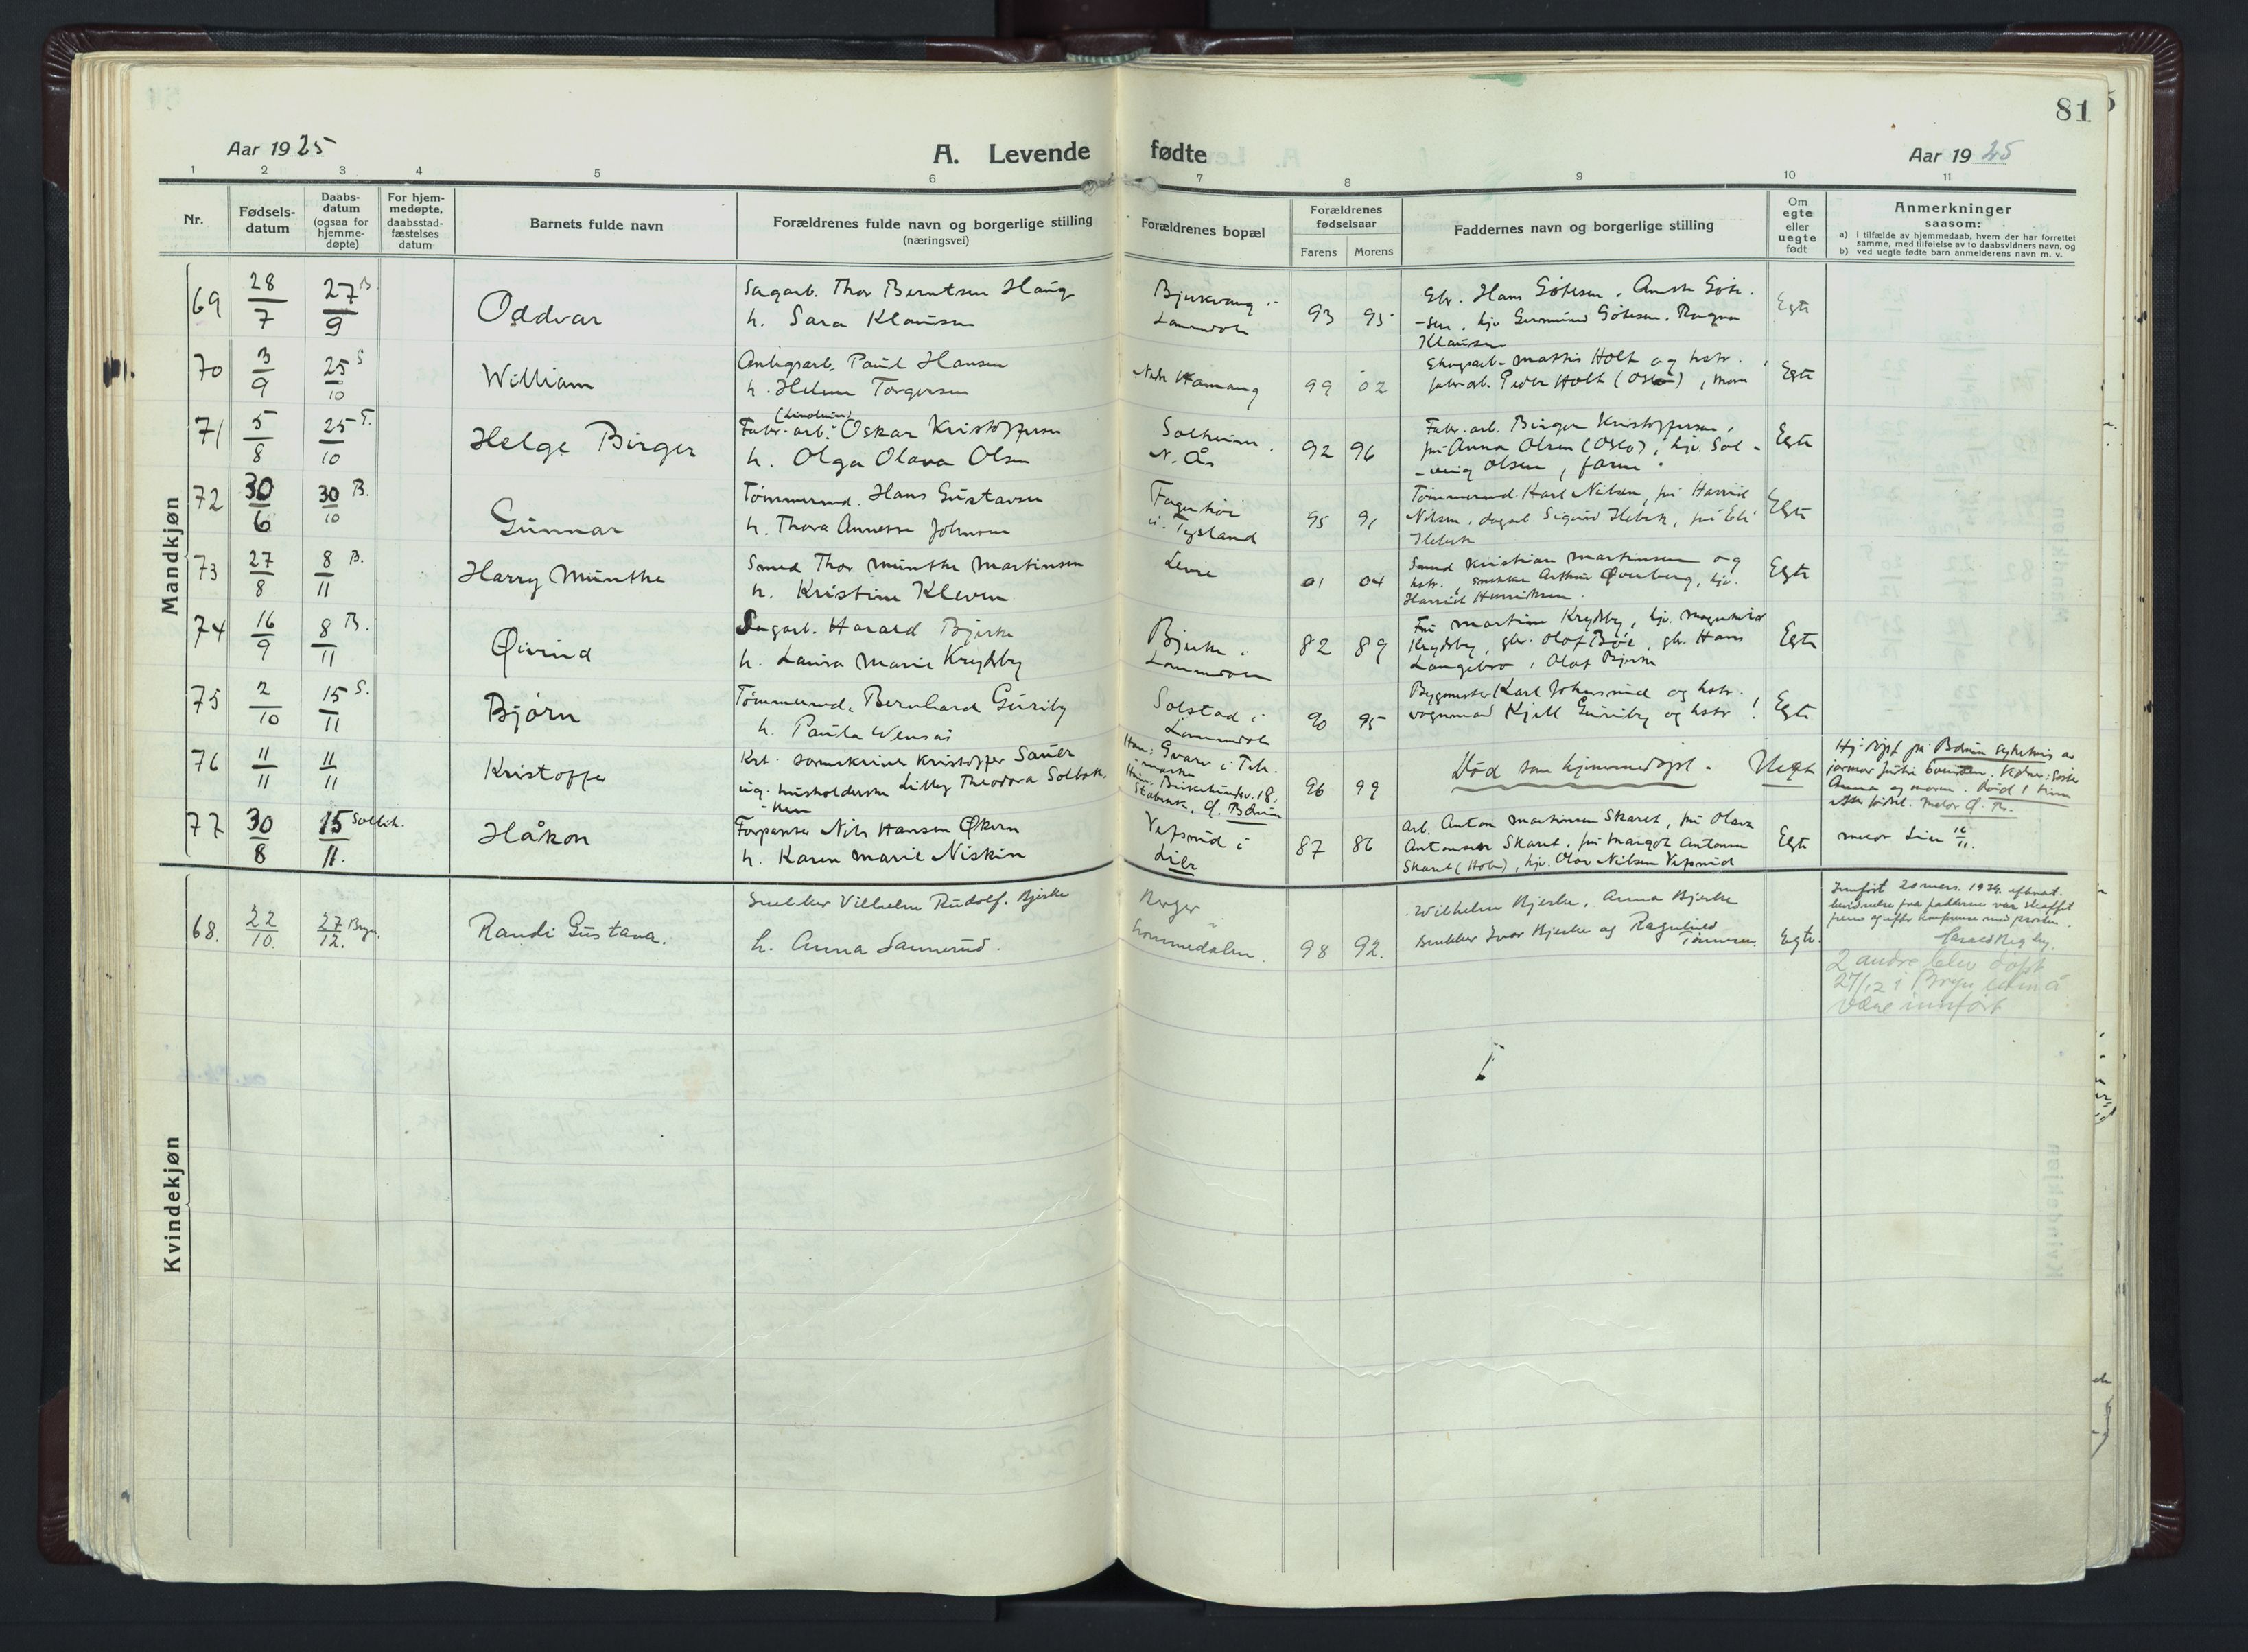 81
Aar 1925
A. Levende fødte
Aar 1925
1 2 3 4 5 6 7 8 9 10 11
Nr.
Fødsels-
datum
Daabs-
datum
(ogsaa for
hjemme-
døpte)
For hjem-
medøpte,
daabsstad-
fæstelses
datum
Barnets fulde navn
Forældrenes fulde navn og borgerlige stilling
(næringsvei)
Forældrenes bopæl
Forældrenes
fødselsaar
Farens Morens
Faddernes navn og borgerlige stilling
Om
egte
eller
uegte
født
Anmerkninger
saasom:
a) i tilfælde av hjemmedaab, hvem der har forrettet
samme, med tilføielse av to daabsvidners navn, og
b) ved uegte fødte barn anmelderens navn m. v.
Mandkjøn
69 28/7 27/9 B. Oddvar
Sagarb. Thor Berntsen Haug
h. Sara Klausen
Bjerkvang i
Lommedalen
93 95
Hans Gøtesen,
Klausen
Egte
70 3/9 25/10 S William
Anlegsarb. Paul Hansen
h. Helene Torgersen
Nedre Hamang
99 02
Mattis Holt og hstr.
fabr.arb. Peder Holt (Oslo), mor
Egte
71 5/8 25/10 T. Helge Birger
(Linoleum)
Fabr.arb. Oskar Kristoffersen
h. Olga Olava Olsen
Solheim
N. Ås
92 96
Fabr.arb. Birger Kristoffersen,
fru Anna Olsen (Oslo), hjv. Sol-
-veig Olsen, faren.
Egte
72 30/6 30/10 B. Gunnar
Tømmermd. Hans Gustavsen
h. Thora Annette Johnsen
Fagerhøi
i Tysland
95 91
Tømmermd. Karl Nilsen, fru Harriet
Nilsen, Sigurd Hebek, fru Eli
Hebek
Egte
73 27/8 8/11 B. Harry Munthe
Smed Thor Munthe Martinsen
h. Kristine Kleven
Levre
01 04
Smed Kristian Martinsen og
hstr., snekker Arthur Øverberg, hjv.
Harriet Henriksen.
Egte
74 16/9 8/11 B. Øivind
Sagarb. Harald Bjerke
h. Laura Marie Krydsby
Bjerke i
Lommedalen
82 89
Fru Martine Krydsby, hjv. Magnhild
Krydsby, gbr. Olof Bøe, gb. Hans
Langebro, Olaf Bjerke
Egte
75 2/10 15/11 S. Bjørn
Tømmermd. Bernhard Guriby
h. Paula Wensås
Solstad i
Lommedalen
90 95
Bygmester Karl Johnsrud og hstr.
vognmand Kjell Guriby og hstr!
Egte
76 11/11 11/11 Kristoffer
Kst. sorenskriver Kristoffer Sauer
ug. husholderske Lilly Theodora Solbak-
-ken
Han: Gvarv i Tel.
-marken
Hun: Birkelundsv. 18,
Stabekk, Ø. Bærum
96 99
Død som hjemmedøpt.
Uegte
Hj.døpt på Bærum sykehus av
jormor
og moren. Død 1 time
77 30/8 15/11. Solbih. Håkon
Forpakter Nils Hansen Økern
h. Karen Marie Niskin
Vefsrud i
Lier
87 86
Arb. Anton Martinsen Skaret, fru Olava
Antonsen Skaret, fru Margot Antonsen
Skaret (Hole), hjv. Olav Nilsen Vefsrud
Egte
Lier 16/11.
Kvindekjøn
68. 22/10. 27/12. Bryn. Randi Gustava.
Snekker Vilhelm Rudolf Bjerke
h. Anna Sannerud.
Berger
i
Lommedalen.
98 92.
Wilhelm Bjerke, Anna Bjerke
Snekker Ivar Bjerke og Ragnhild
Tønnesen.
Egte.
Innført 20 mars. 1934. efterat
bevidnelse fra fadderne var skaffet
frem og efter konferanse med prosten.
2 andre blev døpt
27/12 i Bryn
være innført